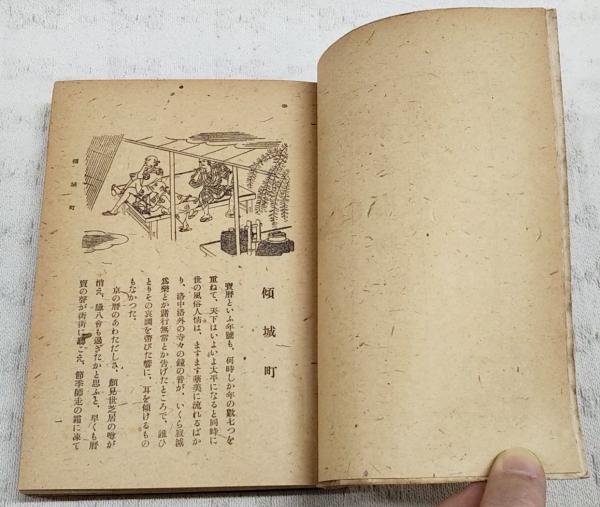 傾城町
傾城町
寶曆といふ年號も、何時しか年の數七つを
重ねて、天下はいよいよ太平になると同時に
世の風俗人情は、ますます華美に流れるばか
り、洛中洛外の寺々の鐘の音が、いくら寂滅
爲樂とか諸行無常とか告げたところで、誰ひ
とりその哀調を帶びた響に、耳を傾けるもの
もなかつた。
京の曆のあわただしさ、顏見世芝居の噂が
消え、臘八會も過ぎたかと思ふと、早くも曆
賣の聲が街街に聽こえ、節季師走の霜に凍て
一